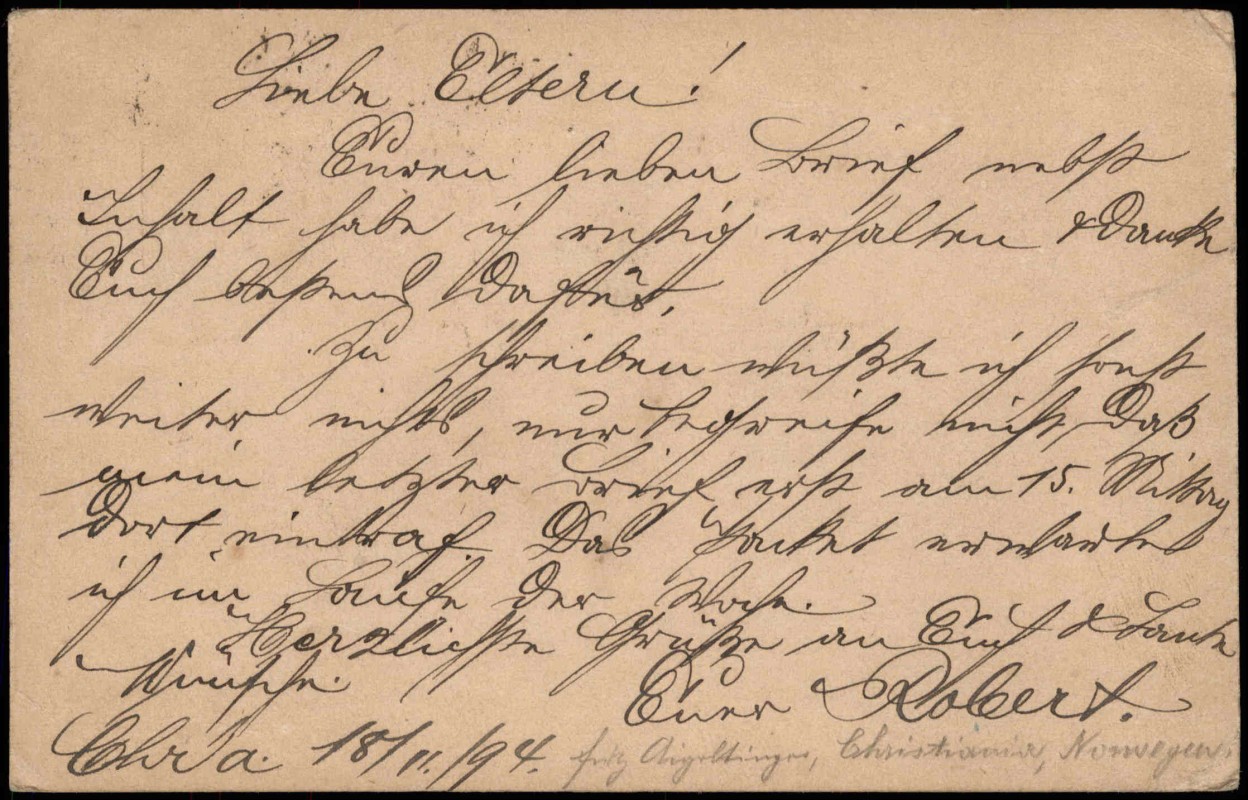 Liebe Eltern!
Euren lieben Brief nebst
Inhalt habe ich richtig erhalten & danke
Euch bestens dafür.
Zu schreiben wüßte ich sonst
weiter nichts, nur begreife nicht, daß
mein letzter Brief erst am 15. Mittag
dort eintraf. Das Packet erwarte
ich im Laufe der Woche.
Herzlichste Grüße an Euch & Tante
Euer Robert.
Chr'a. 18/11./94. Aigeltinger, Christiania, Norwegen